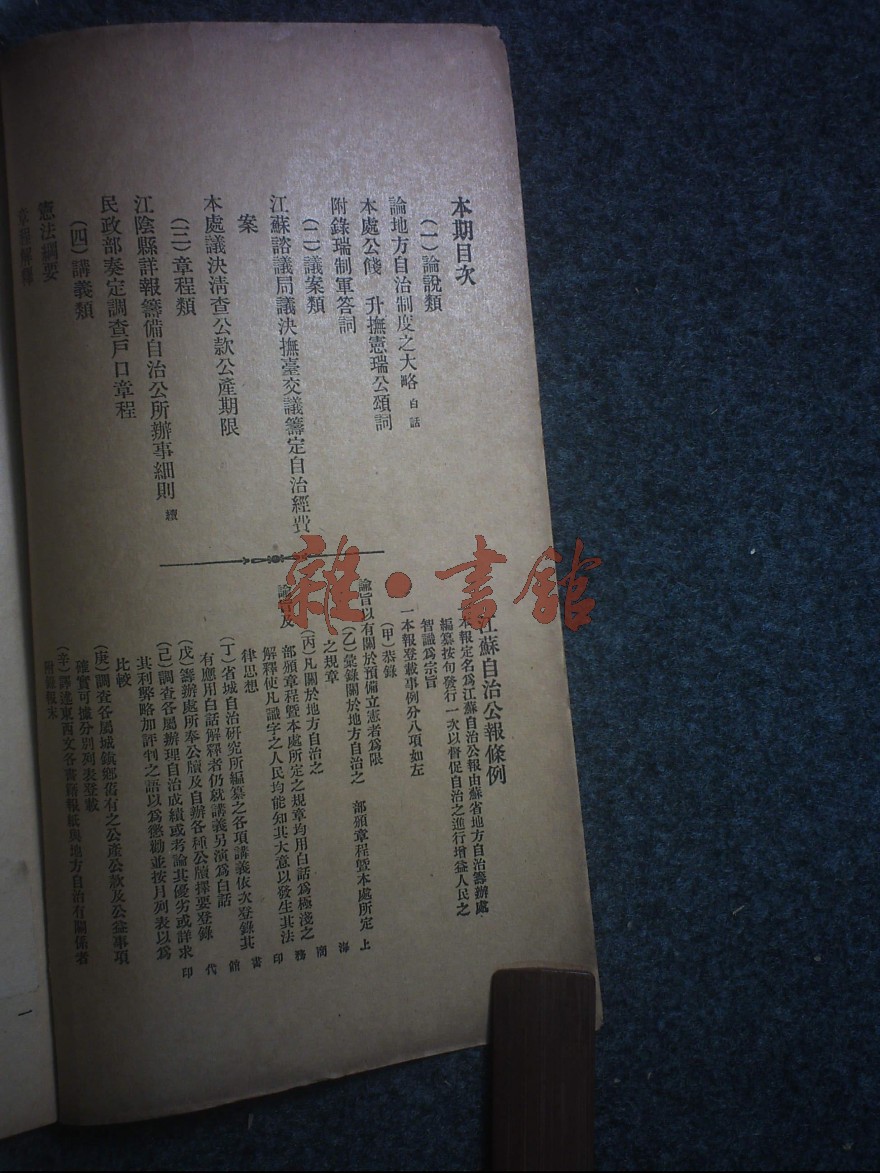 本期目次
(一)論說類
論地方自治制度之大略 白話
本處公餞 升撫憲瑞公頌詞
附錄瑞制軍答詞
(二)議案類
江蘇諮議局議決撫臺交議籌定自治經費
案
本處議決淸查公款公產期限
(三)章程類
江陰縣詳報籌備自治公所辦事細則 續
民政部奏定調查戶口章程
(四)講義類
憲法綱要
章程解釋
江蘇自治公報條例
本報定名爲江蘇自治公報由蘇省地方自治籌辦處
編纂按旬發行一次以督促自治之進行增益人民之
智識爲宗旨
一本報登載事例分八項如左
(甲)恭錄
諭旨以有關於預備立憲者爲限
(乙)彙錄關於地方自治之 部頒章程曁本處所定
之規章
(丙)凡關於地方自治之
諭旨及 部頒章程曁本處所定之規章均用白話爲極淺之
解釋使凡識字之人民均能知其大意以發生其法
律思想
(丁)省城自治硏究所編纂之各項講義依次登錄其
有應用白話解釋者仍就講義另演爲白話
(戊)籌辦處所奉公牘及自辦各種公牘擇要登錄
(己)調查各屬辦理自治成績或考論其優劣或詳求
其利弊略加評判之語以爲懲勸並按月列表以爲
比較
(庚)調查各屬城鎭鄕舊有之公產公款及公益事項
確實可據分別列表登載
(辛)譯述東西文各書籍報紙與地方自治有關係者
附錄報末
上海商務印書館代印
一
雜·書館